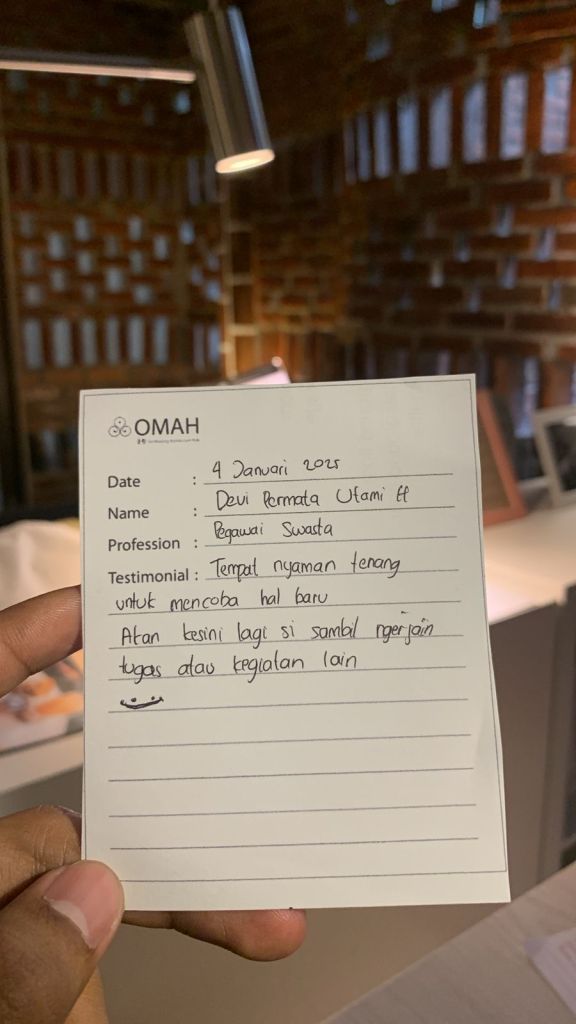 OMAH
Date : 4 Januari 2025
Name : Devi Permata Utami H
Profession : Pegawai Swasta
Testimonial : Tempat nyaman tenang
untuk mencoba hal baru
Akan kesini lagi si sambil ngerjain
tugas atau kegiatan lain